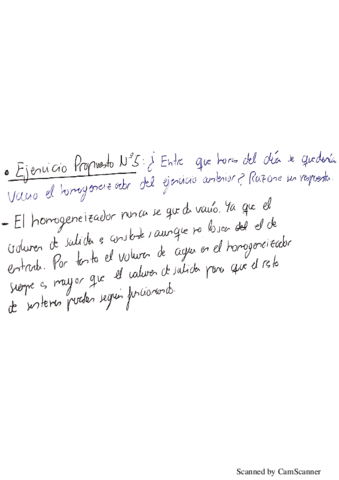 • Ejercicio Propuesto Nº5: ¿Entre que horas del día se quedaría
vacio el homogeneizador del ejercicio anterior? Razone su respuesta.
- El homogeneizador nunca se queda vacío. Ya que el
volumen de salida es constante, aunque no lo sea el de
entrada. Por tanto el volumen de agua en el homogeneizador
siempre es mayor que el volumen de salida para que el resto
de sistemas puedan seguir funcionando.
Scanned by CamScanner